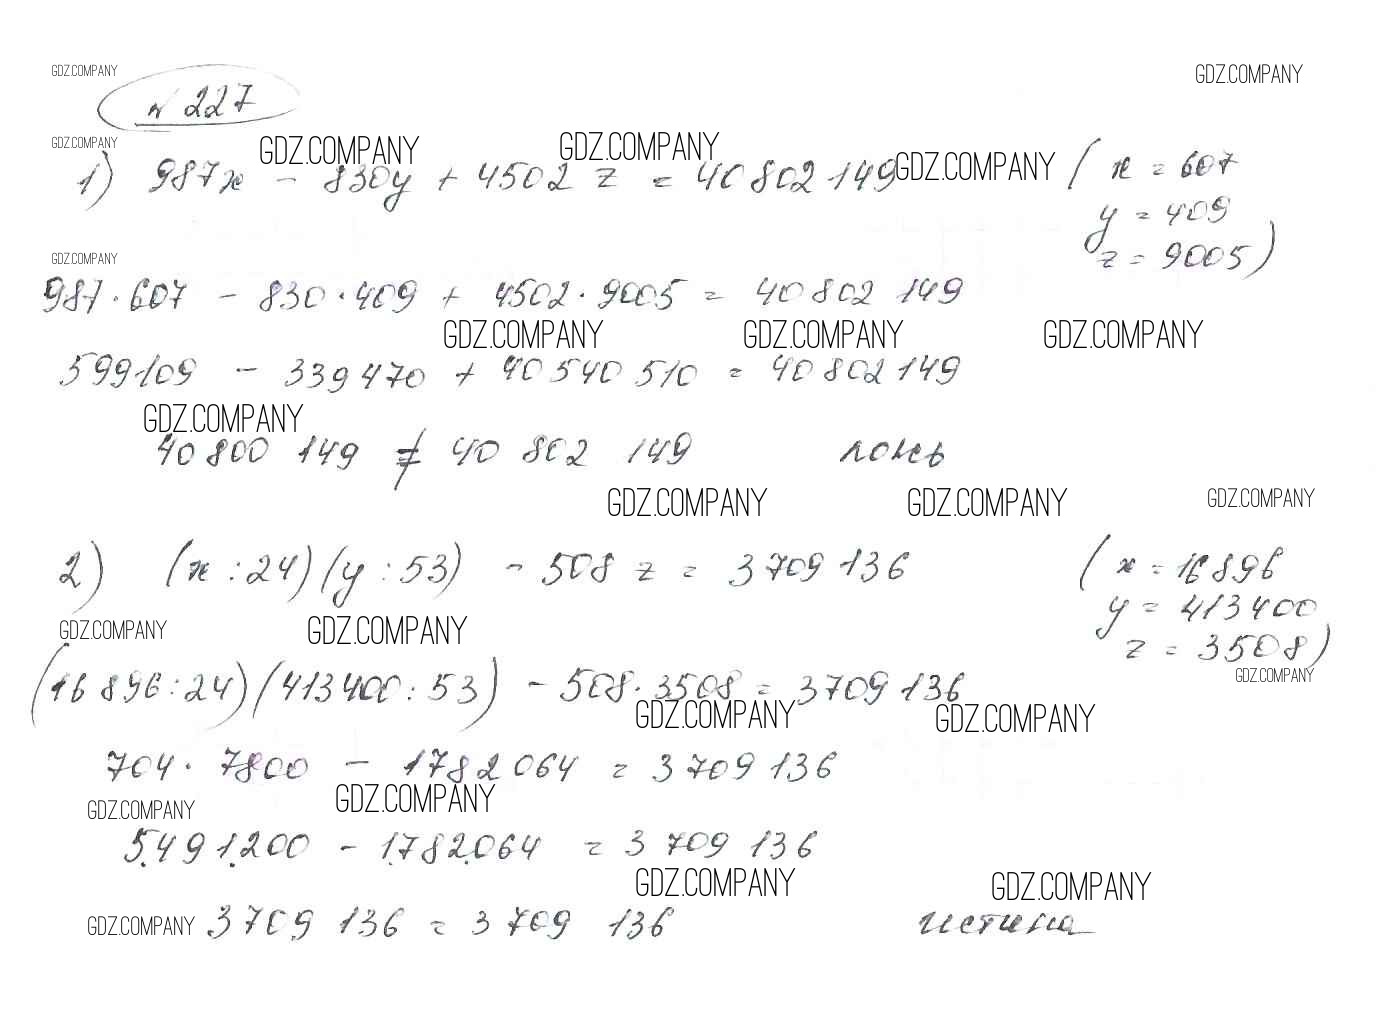 GDZ.COMPANY GDZ.COMPANY
№ 227
GDZ.COMPANY GDZ.COMPANY GDZ.COMPANY GDZ.COMPANY
1) 987x - 830y + 4502 z = 40 802 149 ( x = 607
y = 409
z = 9005 )
GDZ.COMPANY
987 · 607 - 830 · 409 + 4502 · 9005 = 40 802 149
GDZ.COMPANY GDZ.COMPANY GDZ.COMPANY
599109 - 339 470 + 40 540 510 = 40 802 149
GDZ.COMPANY
40 800 149 ≠ 40 802 149 ложь
GDZ.COMPANY GDZ.COMPANY GDZ.COMPANY
2) (x : 24) (y : 53) - 508 z = 3 709 136 ( x = 16 896
y = 413 400
z = 3508 )
GDZ.COMPANY GDZ.COMPANY
(16 896 : 24) (413 400 : 53) - 508 · 3508 = 3 709 136
GDZ.COMPANY
GDZ.COMPANY GDZ.COMPANY
704 · 7800 - 1782 064 = 3 709 136
GDZ.COMPANY GDZ.COMPANY
5.491.200 - 1.782.064 = 3 709 136
GDZ.COMPANY GDZ.COMPANY
GDZ.COMPANY 3 709 136 = 3 709 136 истина